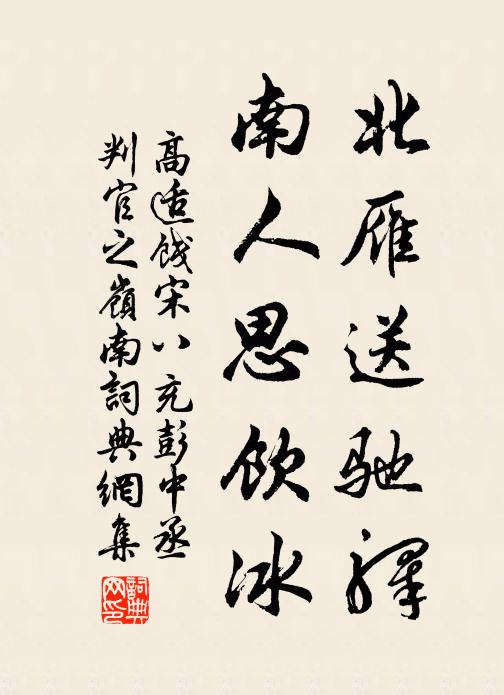 北雁送馳驛
南人思飲冰
高适餞宋八充彭中丞
判官之嶺南詞典網集
詞典網印